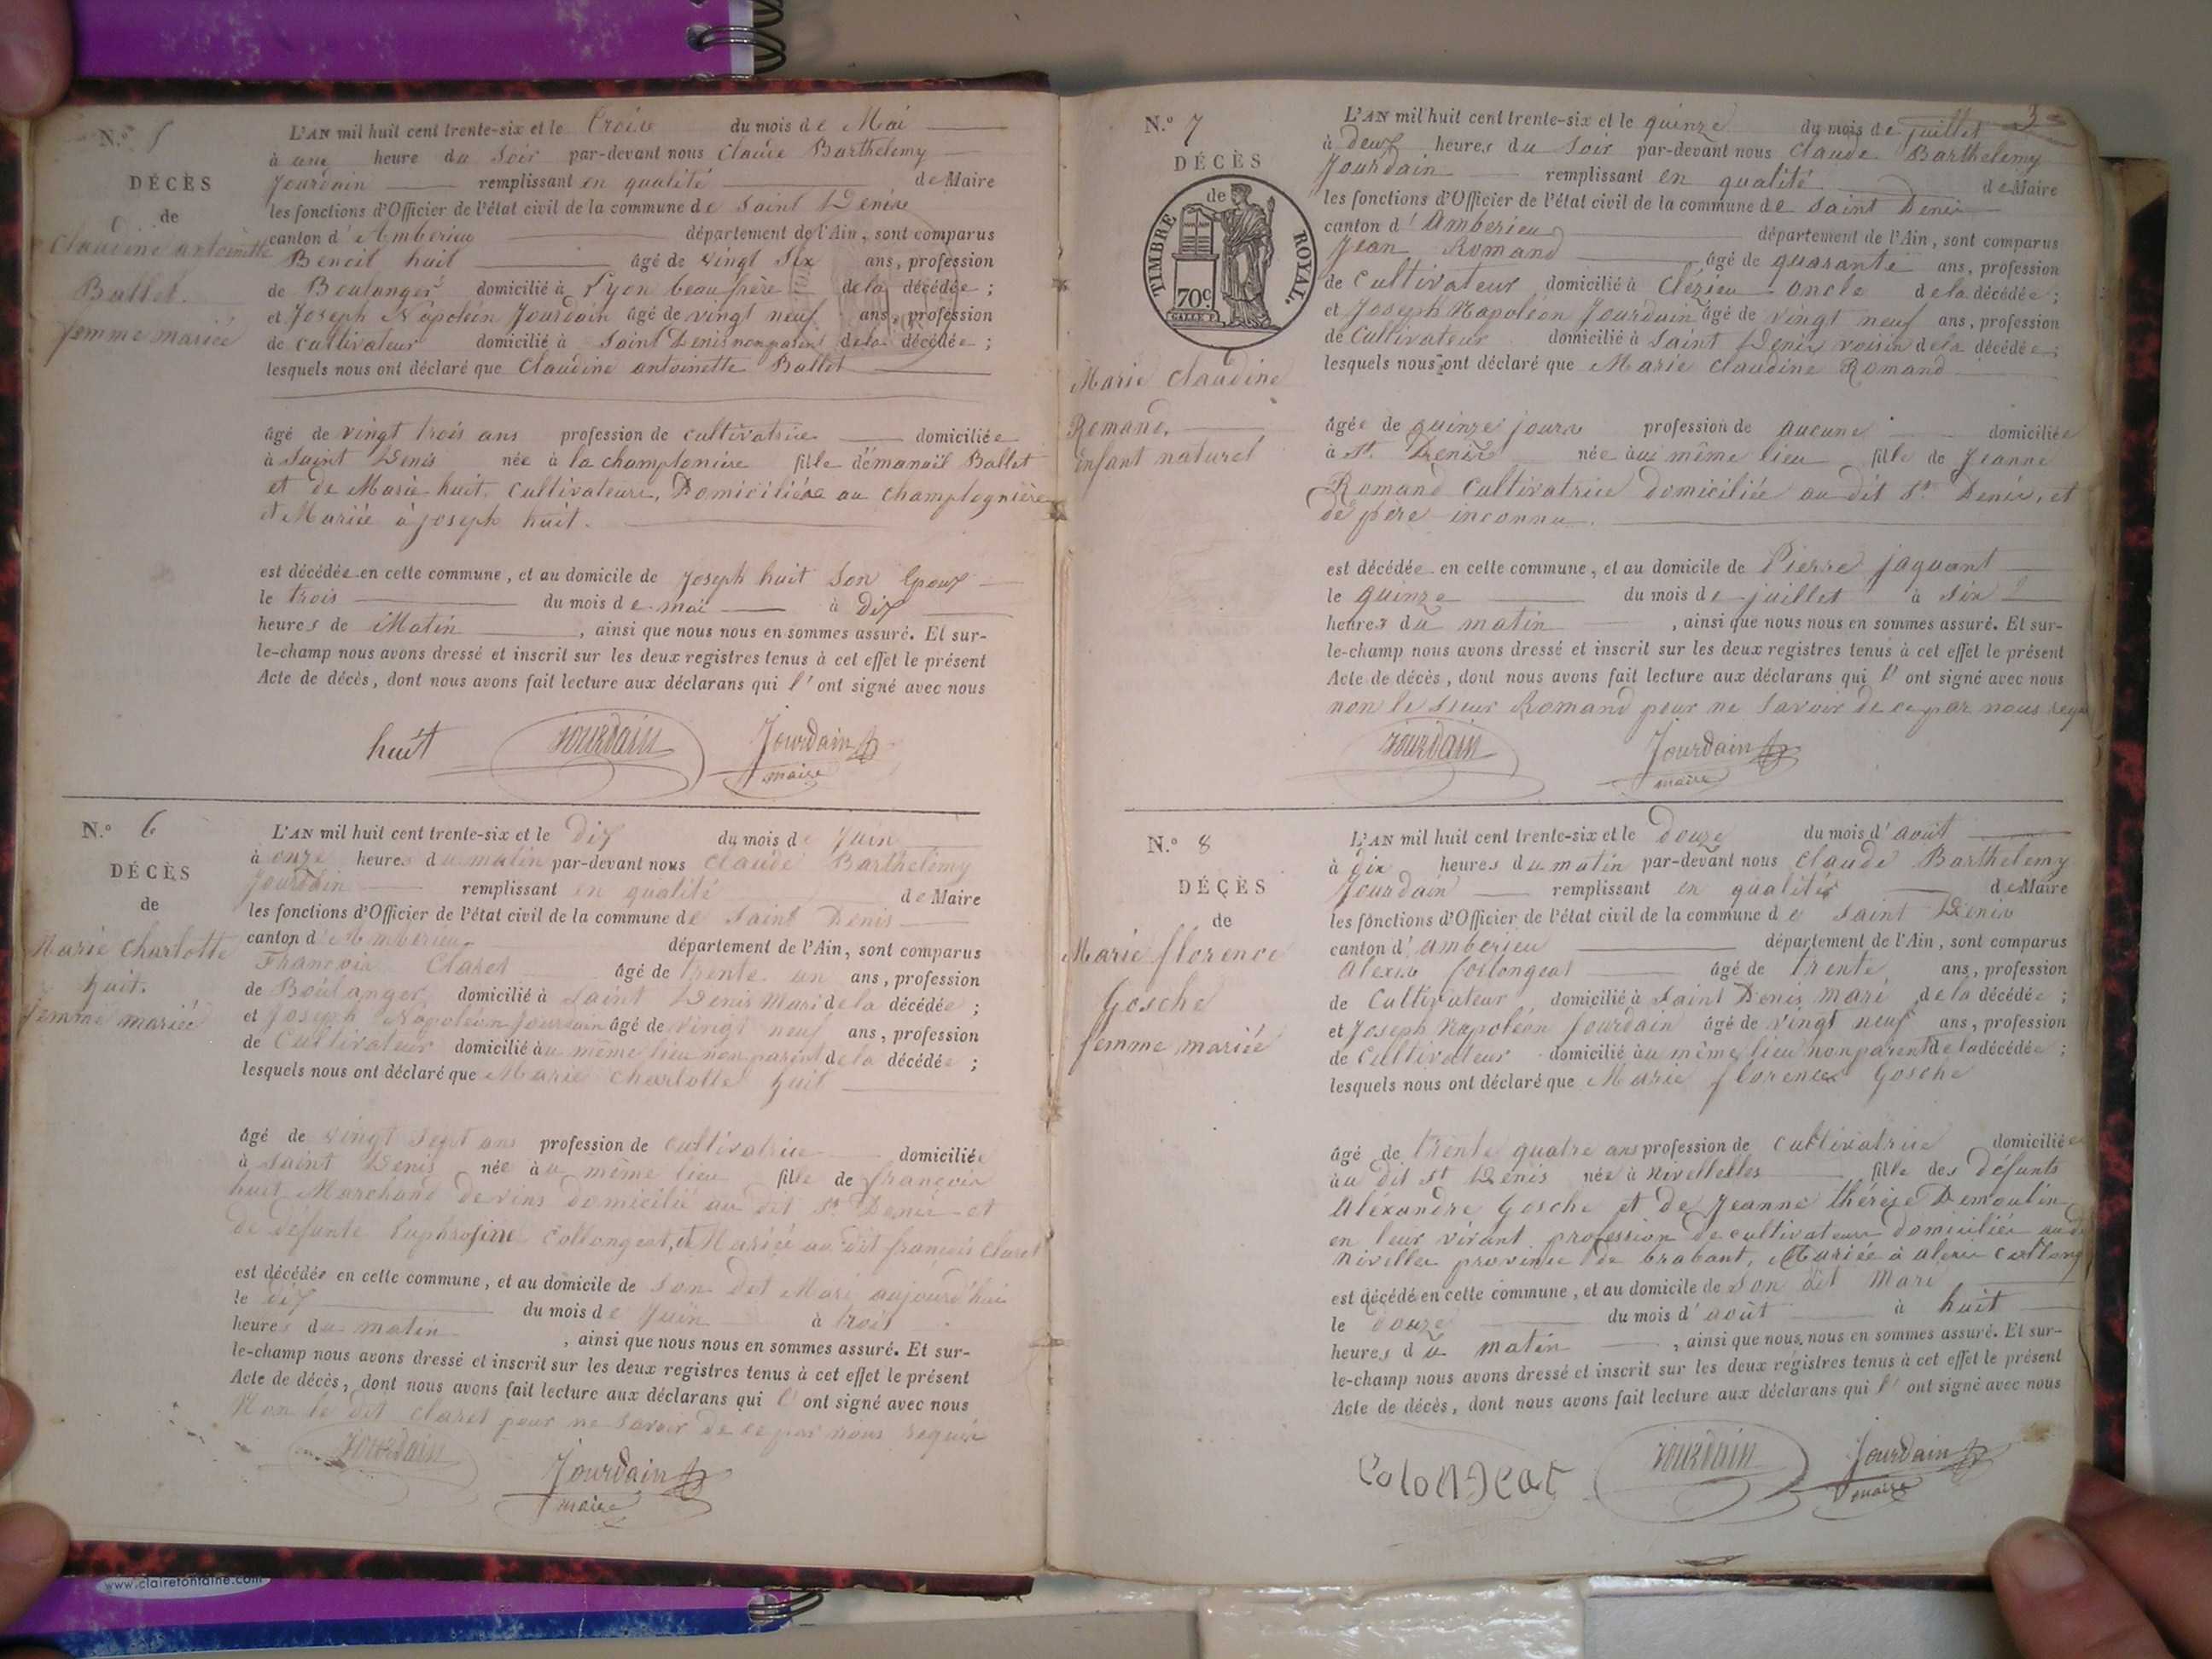 N.º 5
DÉCÈS
de
Claudine antoinette
Ballet.
femme mariée
L'AN mil huit cent trente-six et le trois du mois de Mai
à une heure du soir par-devant nous Claude Barthelemy
Jourdain remplissant en qualité de Maire
les fonctions d'Officier de l'état civil de la commune de Saint Denis
canton d'Amberieu département de l'Ain, sont comparus
Benoit huit âgé de vingt six ans, profession
de Boulanger domicilié à Lyon beau frère de la décédée ;
et Joseph Napoléon Jourdain âgé de vingt neuf ans, profession
de cultivateur domicilié à Saint Denis non parent de la décédée ;
lesquels nous ont déclaré que Claudine antoinette Ballet
âgé de vingt trois ans profession de cultivatrice domiciliée
à Saint Denis née à la champloniere fille d'émanuïl Ballet
et de Marie huit. Cultivateurs, Domiciliés au champlognière
et Mariée à joseph huit.
est décédée en cette commune, et au domicile de Joseph huit Son Epoux
le trois du mois de mai à Dix
heures de Matin , ainsi que nous nous en sommes assuré. Et sur-
le-champ nous avons dressé et inscrit sur les deux registres tenus à cet effet le présent
Acte de décès, dont nous avons fait lecture aux déclarans qui l'ont signé avec nous
huit Jourdain Jourdain
maire
N.º 6
DÉCÈS
de
Marie Charlotte
huit.
femme mariée
L'AN mil huit cent trente-six et le Dix du mois de Juin
à onze heures du matin par-devant nous Claude Barthelemy
Jourdain remplissant en qualité de Maire
les fonctions d'Officier de l'état civil de la commune de Saint Denis
canton d'Amberieu département de l'Ain, sont comparus
François Claret âgé de trente un ans, profession
de Boulanger domicilié à Saint Denis Mari de la décédée ;
et Joseph Napoléon Jourdain âgé de vingt neuf ans, profession
de Cultivateur domicilié au même lieu non parent de la décédée ;
lesquels nous ont déclaré que Marie Charlotte huit
âgé de vingt sept ans profession de cultivatrice domiciliée
à Saint Denis née au même lieu fille de françois
huit Marchand de vins domicilié au dit St. Denis et
de défunte Euphrosine Collongeat, et Mariée au dit françois Claret
est décédée en cette commune, et au domicile de Son dit Mari aujourd'hui
le dix du mois de Juin à trois
heures du matin , ainsi que nous nous en sommes assuré. Et sur-
le-champ nous avons dressé et inscrit sur les deux registres tenus à cet effet le présent
Acte de décès, dont nous avons fait lecture aux déclarans qui l'ont signé avec nous
Non le dit Claret pour ne Savoir de ce par nous requis
Jourdain Jourdain
maire
3e
N.º 7
DÉCÈS
de
TIMBRE ROYAL.
70c
Marie Claudine
Romand,
Enfant naturel
L'AN mil huit cent trente-six et le quinze du mois de juillet
à deux heures du Soir par-devant nous Claude Barthelemy
Jourdain remplissant en qualité de Maire
les fonctions d'Officier de l'état civil de la commune de Saint Denis
canton d'Amberieu département de l'Ain, sont comparus
Jean Romand âgé de quarante ans, profession
de Cultivateur domicilié à Clézieu oncle de la décédée ;
et Joseph Napoléon Jourdain âgé de vingt neuf ans, profession
de Cultivateur domicilié à Saint Denis voisin de la décédée ;
lesquels nous ont déclaré que Marie Claudine Romand
âgée de quinze jours profession de aucune domiciliée
à St. Denis née au même lieu fille de Jeanne
Romand Cultivatrice domiciliée au dit St Denis, et
de père inconnu.
est décédée en cette commune, et au domicile de Pierre jaquant
le quinze du mois de juillet à Six
heures du matin , ainsi que nous nous en sommes assuré. Et sur-
le-champ nous avons dressé et inscrit sur les deux registres tenus à cet effet le présent
Acte de décès, dont nous avons fait lecture aux déclarans qui l'ont signé avec nous
non le Sieur Romand pour ne Savoir de ce par nous requ
Jourdain Jourdain
maire
N.º 8
DÉCÈS
de
Marie florence
Gosche
femme mariée
L'AN mil huit cent trente-six et le Douze du mois d'août
à dix heures du matin par-devant nous Claude Barthelemy
Jourdain remplissant en qualité de Maire
les fonctions d'Officier de l'état civil de la commune de Saint Denis
canton d'amberieu département de l'Ain, sont comparus
Alexis Collongeat âgé de trente ans, profession
de Cultivateur domicilié à Saint Denis mari de la décédée ;
et Joseph Napoléon Jourdain âgé de vingt neuf ans, profession
de Cultivateur domicilié au même lieu non parent de la décédée ;
lesquels nous ont déclaré que Marie florence Gosche
âgé de trente quatre ans profession de cultivatrice domiciliée
au dit St Denis née à Nivelles fille des défunts
Aléxandre Gosche et de Jeanne thérèse Demoulin
en leur vivant profession de cultivateurs domiciliés au dt
Nivelles province de brabant, Mariée à alexis Collong
est décédé en cette commune, et au domicile de Son dit Mari
le douze du mois d'août à huit
heures du matin , ainsi que nous nous en sommes assuré. Et sur-
le-champ nous avons dressé et inscrit sur les deux registres tenus à cet effet le présent
Acte de décès, dont nous avons fait lecture aux déclarans qui l'ont signé avec nous
Colongeat Jourdain Jourdain
maire
www.clairefontaine.com